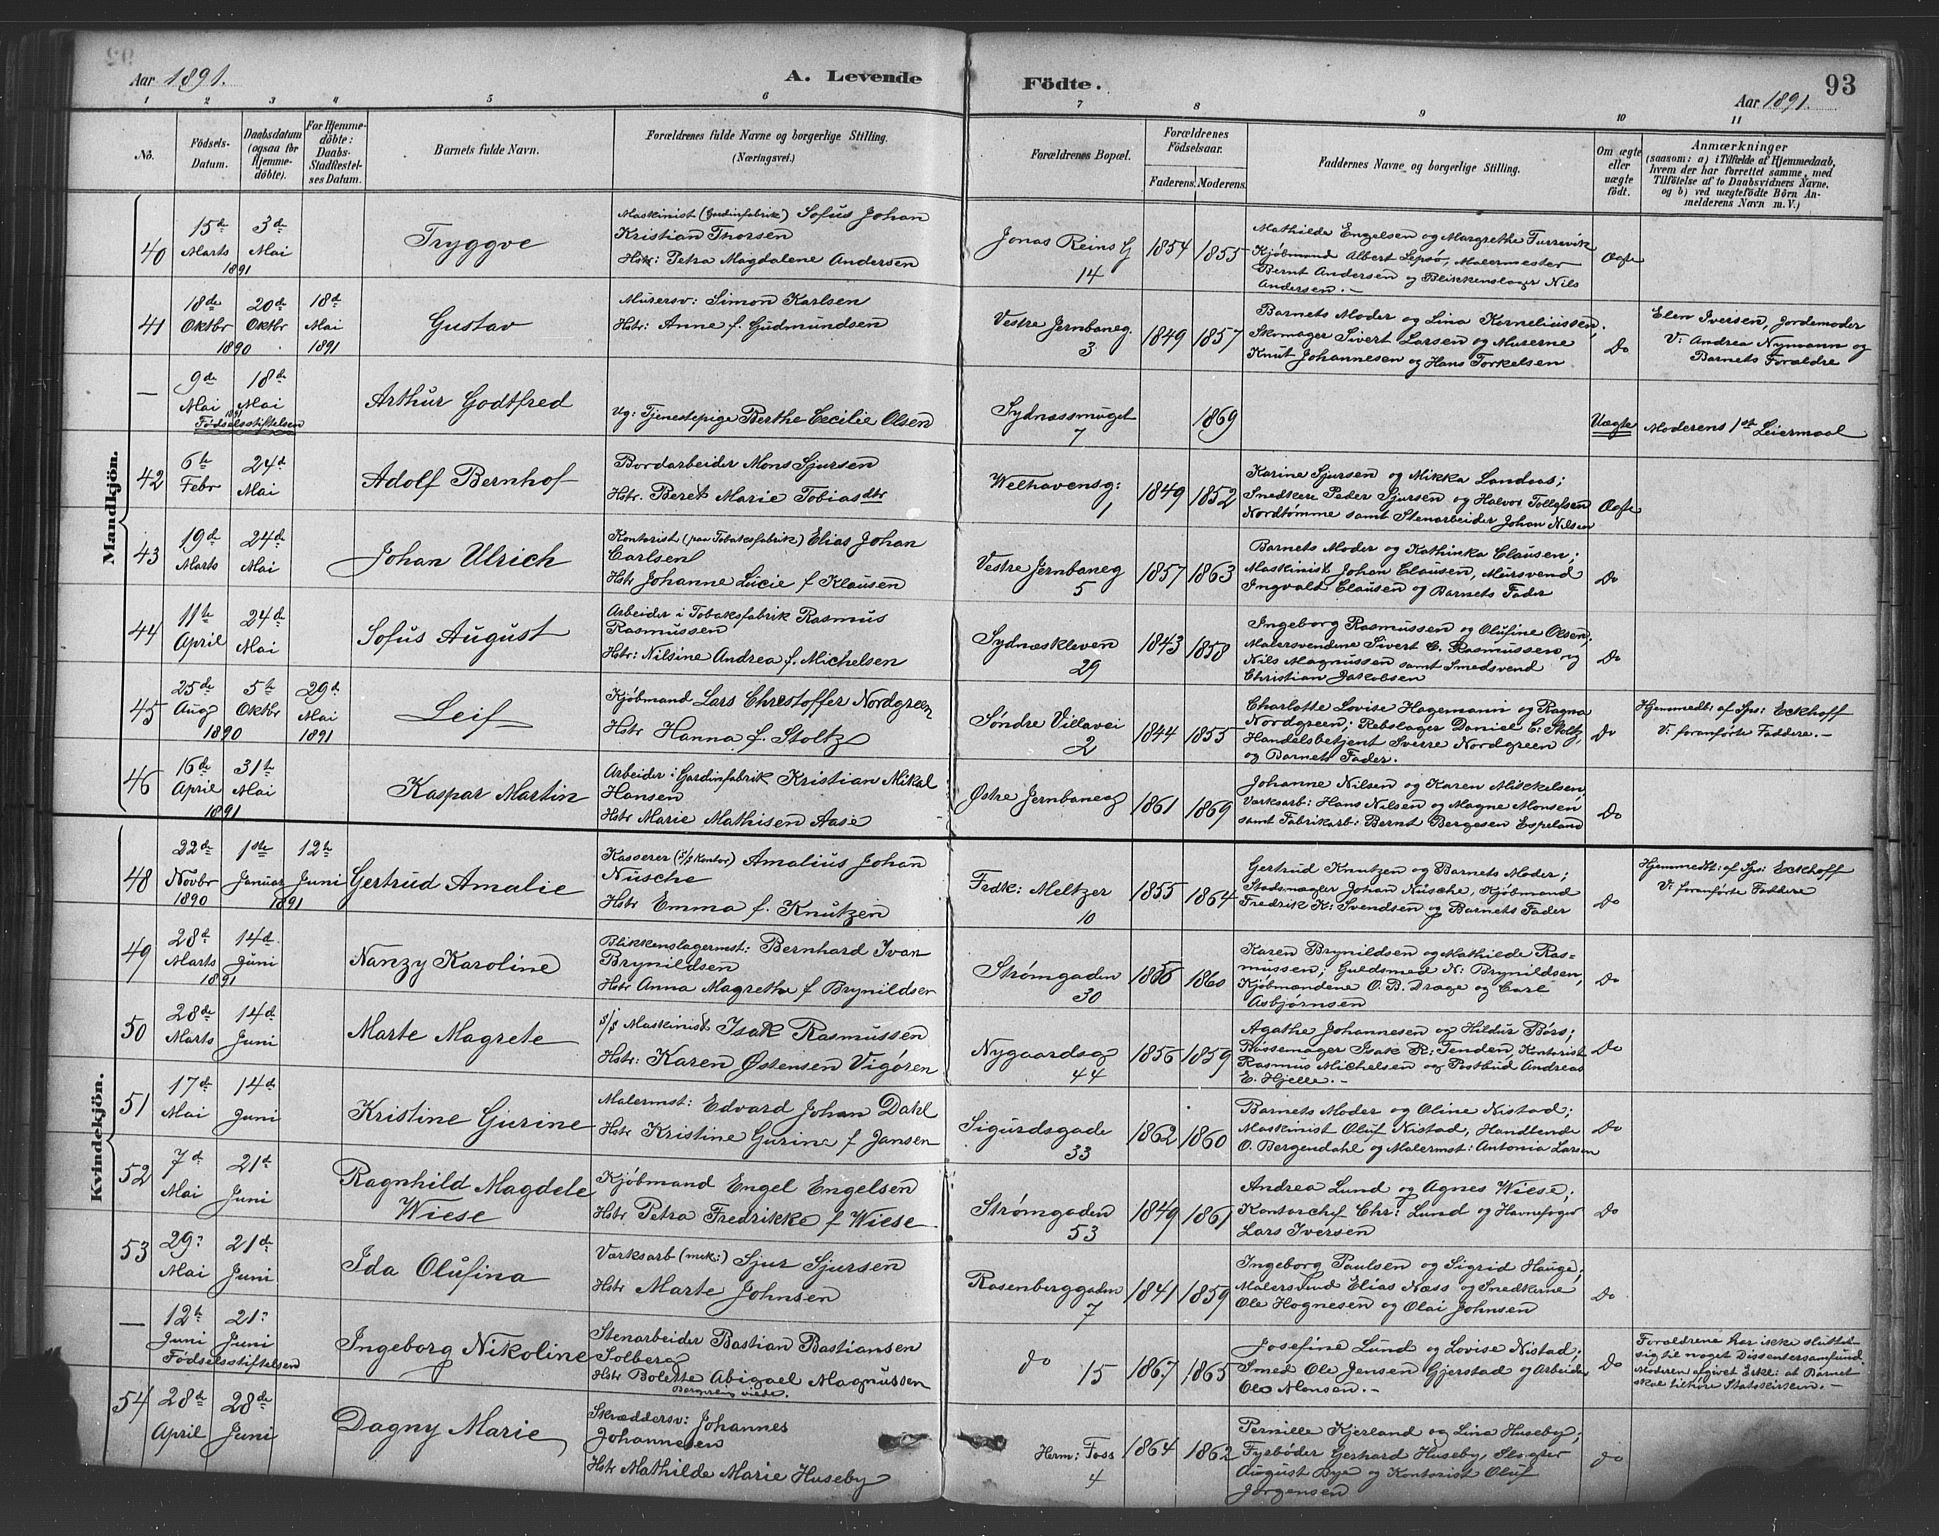 Aar 1891.
A. Levende Födte.
93
Aar 1891.
1 2 3 4 5 6 7 8 9 10 11
No.
Födsels-Datum.
Daabsdatum (ogsaa for Hjemmedöbte).
For Hjemmedöbte: Daabs-Stadfæstelses Datum.
Barnets fulde Navn.
Forældrenes fulde Navne og borgerlige Stilling. (Næringsvei.)
Forældrenes Bopæl.
Forældrenes Födselsaar.
Faderens. Moderens.
Faddernes Navne og borgerlige Stilling.
Om ægte eller uægte födt.
Anmærkninger
(saasom: a) i Tilfælde af Hjemmedaab, hvem der har forrettet samme, med Tilföielse af to Daabsvidners Navne, og b) ved uægtefödte Börn Anmelderens Navn m. V.)
Mandkjön.
40
15de Marts 1891
3de Mai
Tryggve
Maskinist (Gardinfabrik) Sofus Johan
Kristian Thorsen
Hstr: Petra Magdalene Andersen
Jonas Reins G
14
1854 1855
Mathilde Engelsen og Margrethe Furrevik
Kjøbmand Albert Lepsø, Malermester
Bernt Andersen og Blikkenslager Nils
Andersen.-
Ægte
41
18de Oktbr 1890
20de Oktbr
18de Mai 1891
Gustav
Murersv: Simon Karlsen
Hstr: Anne f. Gudmundsen
Vestre Jernbaneg.
3
1849 1857
Barnets Moder og Lina Korneliussen,
Skomager Sivert Larsen og Murerne
Knut Johannesen og Hans Torkelsen
Do
Elen Iversen, Jordemoder
V: Andrea Nymann og
Barnets Forældre
—
9de Mai 1891
18de Mai
Fødselsstiftelsen
Arthur Godtfred
Ug: Tjenestepige Berthe Cecilie Olsen
Sydnæssmuget
7
1869
Uægte
Moderens 1ste Leiermaal
42
6te Febr
24de Mai
Adolf Bernhof
Bordarbeider Mons Sjursen
Hstr. Beret Marie Tobiasdtr
Welhavensg:
1
1849 1852
Karine Sjursen og Mikka Landaas;
Snedkere Peder Sjursen og Halvor Tollefsen
Nordtømme samt Stenarbeider Johan Nilsen
Ægte
43
19de Marts
24de Mai
Johan Ulrich
Kontorist (paa Tobaksfabrik) Elias Johan
Carlsen
Hstr Johanne Lucie f Klausen
Vestre Jernbaneg
5
1857 1863
Barnets Moder og Kathinka Clausen;
Maskinist Johan Clausen, Mursvend
Ingvald Clausen og Barnets Fader
Do
44
11te April
24de Mai
Sofus August
Arbeider i Tobaksfabrik Rasmus
Rasmussen
Hstr: Nilsine Andrea f. Michelsen
Sydnæskleven
29
1843 1858
Ingeborg Rasmussen og Olufine Olsen;
Malersvendene Sivert C. Rasmussen og
Nils Magnussen samt Smedsvend
Christian Jakobsen
Do
45
25de Aug 1890
5te Oktbr
29de Mai 1891
Leif
Kjøbmand Lars Christoffer Nordgreen
Hstr Hanna f. Stoltz
Søndre Villavei
2
1844 1855
Charlotte Lovise Hagemann og Ragna
Nordgreen; Rebslager Daniel C. Stoltz,
Handelsbetjent Sverre Nordgreen
og Barnets Fader.
Do
Hjemmedb: af Spr: Eckhoff
V: foranførte Faddere.-
46
16de April 1891
31te Mai
Kaspar Martin
Arbeider i Gardinfabrik Kristian Mikal
Hansen
Hstr Marie Mathisen Aase
Østre Jernbaneg
1861 1869
Johanne Nilsen og Karen Mickelsen,
Værksarb: Hans Nilsen og Magne Monsen
samt Fabrikarb: Bernt Bergesen Espeland
Do
Kvindekjön.
48
22de Novbr 1890
1ste Januar
12te Juni 1891
Gertrud Amalie
Kasserer (s/s kontor) Amalius Johan
Nüsche
Hstr Emma f. Knutzen
Frdk: Meltzer
10
1855 1864
Gertrud Knutzen og Barnets Moder;
Stadsmægler Johan Nüsche, Kjøbmand
Fredrik K: Svendsen og Barnets Fader
Do
Hjemmedt: af Spr: Eckhoff
V: foranførte Faddere
49
28de Marts 1891
14de Juni
Nanzy Karoline
Blikkenslagermst: Bernhard Ivan
Brynildsen
Hstr Anna Magrethe f Brynildsen
Strømgaden
30
1855 1860
Karen Brynildsen og Mathilde Ras-
mussen; Guldsmed N: Brynildsen,
Kjøbmændene O. B. Drage og Carl
Asbjørnsen
Do
50
28de Marts
14de Juni
Marte Magrete
s/s Maskinist Isak Rasmussen
Hstr: Karen Østensen Vigøren
Nygaardsg
44
1856 1859
Agathe Johannesen og Hildur Børs;
Bøssemager Isak R: Tenden, Kontorist
Rasmus Michelsen og Postbud Andreas
E. Hjelle.-
Do
51
17de Mai
14de Juni
Kristine Gurine
Malermst: Edvard Johan Dahl
Hstr Kristine Gurine f Jansen
Sigurdsgade
33
1862 1860
Barnets Moder og Oline Nistad;
Maskinist Oluf Nistad, Handlende
O. Bergendahl og Malermst: Antonia Larsen
Do
52
7de Mai
21de Juni
Ragnhild Magdele
Wiese
Kjøbmand Engel Engelsen
Hstr Petra Fredrikke f Wiese
Strømgaden
53
1849 1861
Andrea Lund og Agnes Wiese;
Kontorchef Chr: Lund og Havnefoged
Lars Iversen
Do
53
29: Mai
21de Juni
Ida Olufina
Værksarb (mek:) Sjur Sjursen
Hstr Marte Johnsen
Rosenberggaden
7
1841 1859
Ingeborg Paulsen og Sigrid Hauge;
Malersvend Elias Næss og Snedkerne
Ole Hognesen og Olai Johnsen
Do
—
12te Juni
21: Juni
Fødselsstiftelsen
Ingeborg Nikoline
Stenarbeider Bastian Bastiansen
Solberg
Hstr Bolette Abigael Magnussen
Borgerlig viede.
do
15
1867 1865
Josefine Lund og Lovise Nistad;
Smed Ole Jensen Gjerstad og Arbeider
Ole Monsen.-
Do
Forældrene har ikke sluttet
sig til noget Dissentersamfund.
Moderen afgivet Erkl: at Barnet
skal tilhøre Statskirken.-
54
28de April
28de Juni
Dagny Marie
Skræddersv: Johannes
Johannesen
Hstr Mathilde Marie Huseby
Herm: Foss
4
1864 1862
Pernille Kjerland og Lina Huseby;
Fyrbøder Gerhard Huseby, Slagter
August Bye og Kontorist Oluf
Jørgensen
do